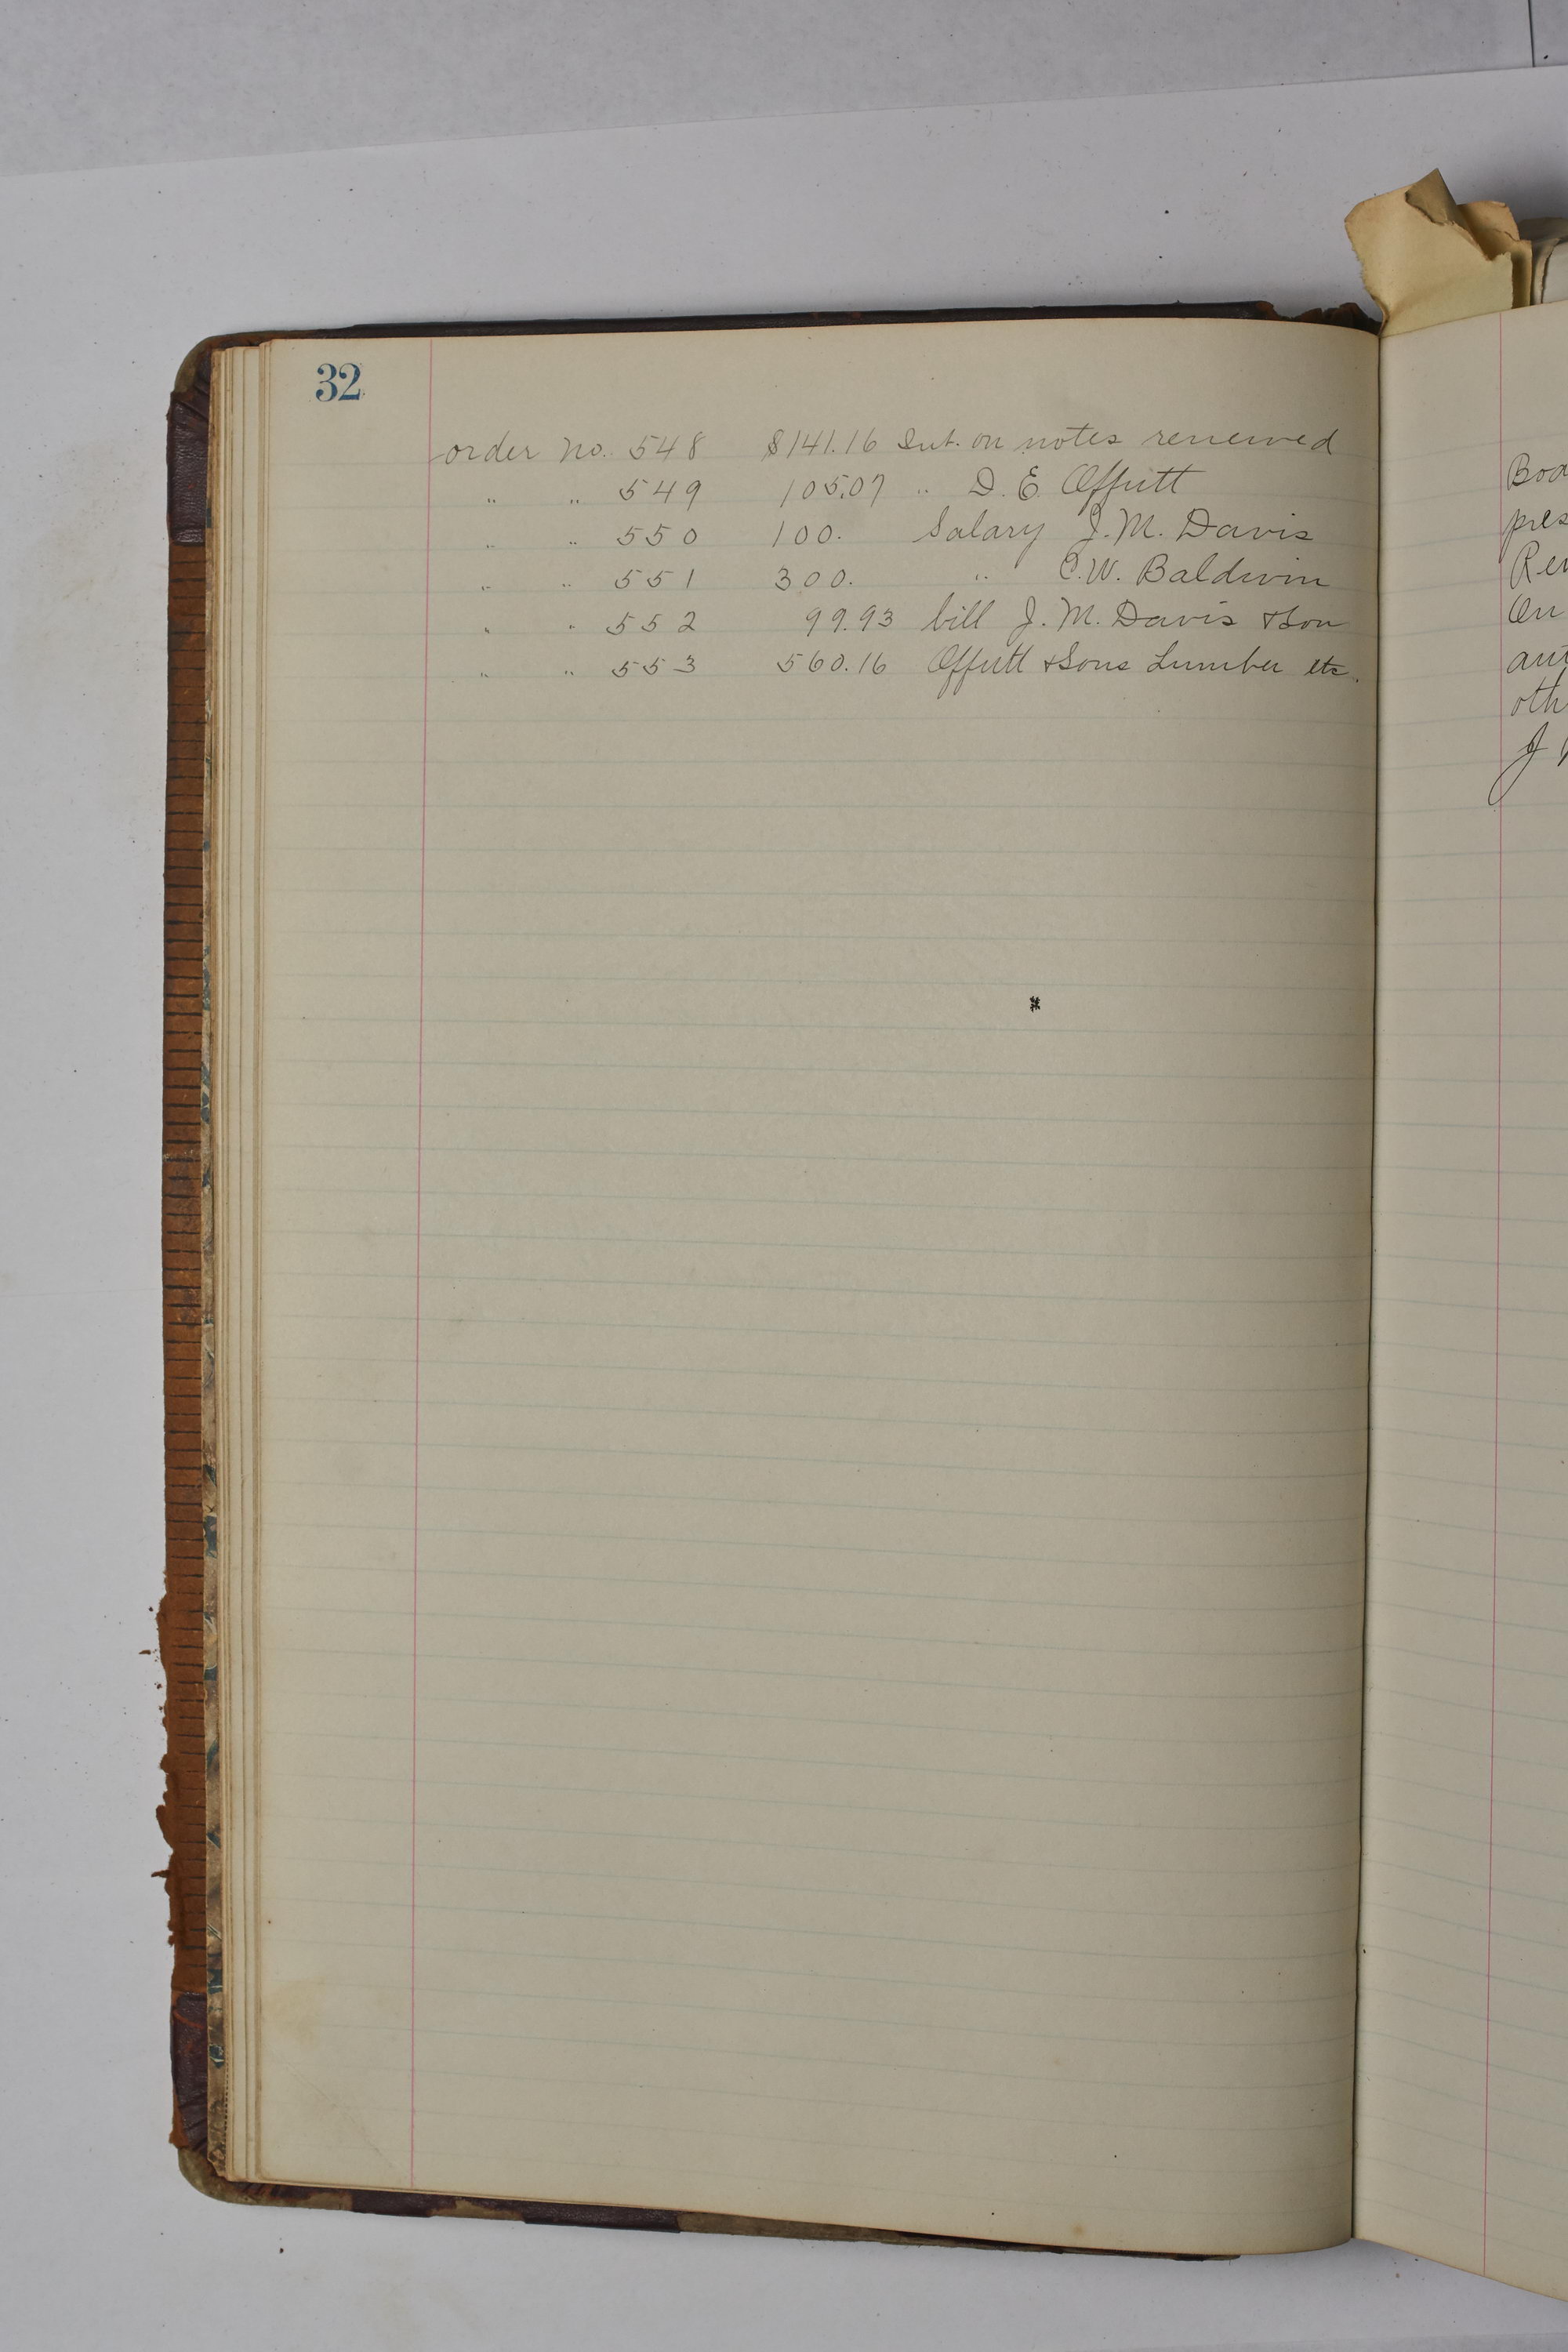 32
order No. 548 $141.16 Int. on notes renewed
" " 549 105.07 " D. E. Offutt
" " 550 100. Salary J. M. Davis
" " 551 300. " C. W. Baldwin
" " 552 99.93 bill J. M. Davis & Son
" " 553 560.16 Offutt & Sons Lumber etc.
Boa
pres
Rev
On
aut
oth
J